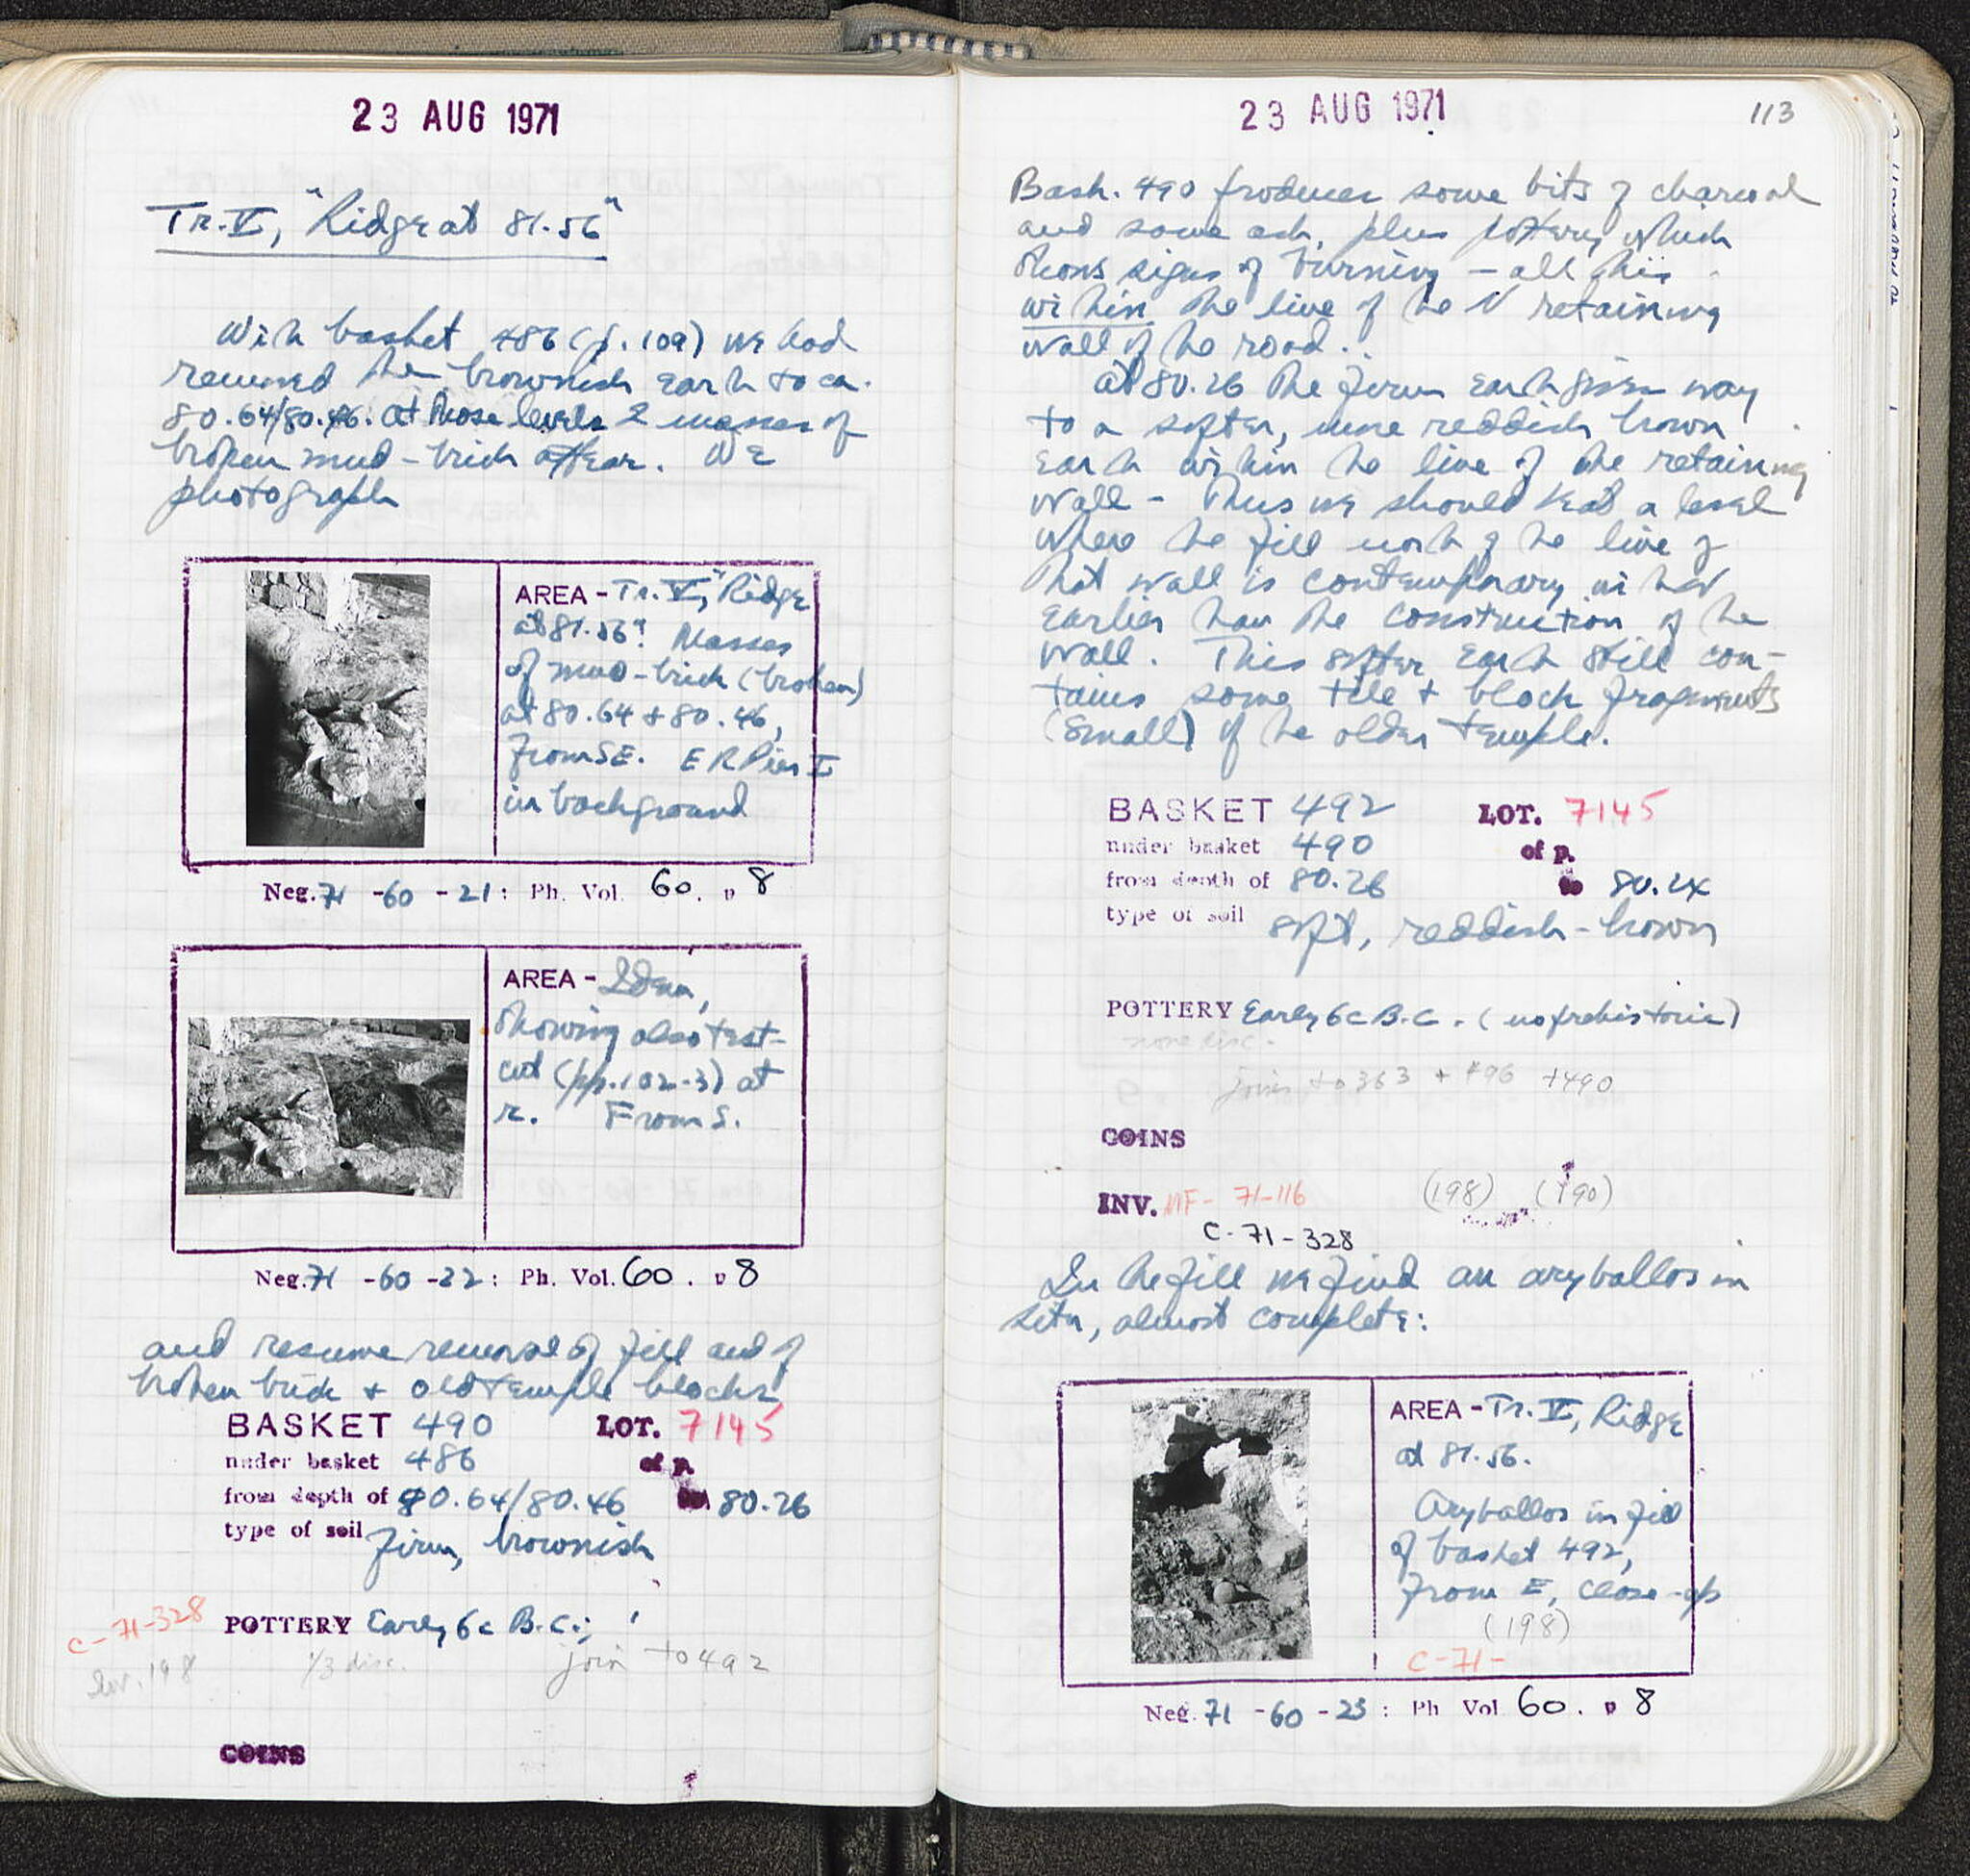 23 AUG 1971
Tr. V, "Ridge at 81.56"
With basket 486 (p. 109) we had
removed the brownish earth to ca.
80.64/80.46. At those levels 2 masses of
broken mud-brick appear. We
photograph
AREA - Tr. V, "Ridge
at 81.56". Masses
of mud-brick (broken)
at 80.64 + 80.46,
from SE. ER Pier I
in background
Neg. 71 - 60 - 21 : Ph. Vol. 60. p 8
AREA - Idem,
showing also test-
cut (pp. 102-3) at
r. From S.
Neg. 71 - 60 - 22 : Ph. Vol. 60. p 8
and resume removal of fill and of
broken brick + old temple blocks
BASKET 490 LOT. 7145
under basket 486 of p.
from depth of 80.64/80.46 to 80.26
type of soil firm, brownish
C-71-328 POTTERY Early 6c B.C.;
Inv. 198 1/3 disc. join to 492
COINS
23 AUG 1971 113
Bask. 490 produces some bits of charcoal
and some ash, plus pottery which
shows signs of burning - all this
within the line of the N retaining
wall of the road.
At 80.26 the firm earth gives way
to a softer, more reddish brown
earth within the line of the retaining
wall - Thus we should be at a level
where the fill north of the line of
that wall is contemporary with
earlier than the construction of the
wall. This softer earth still con-
tains some tile + block fragments
(small) of the older temple.
BASKET 492 LOT. 7145
under basket 490 of p.
from depth of 80.26 to 80.24
type of soil soft, reddish-brown
POTTERY Early 6c B.C. (no prehistoric)
none disc.
joins to 363 + 496 + 490
COINS
INV. MF- 71-116 (198) (190)
C-71-328
In the fill we find an aryballos in
situ, almost complete:
AREA - Tr. V, Ridge
at 81.56.
Aryballos in fill
of basket 492,
from E, close-up
(198)
C-71-
Neg. 71 - 60 - 23 : Ph Vol 60. p 8